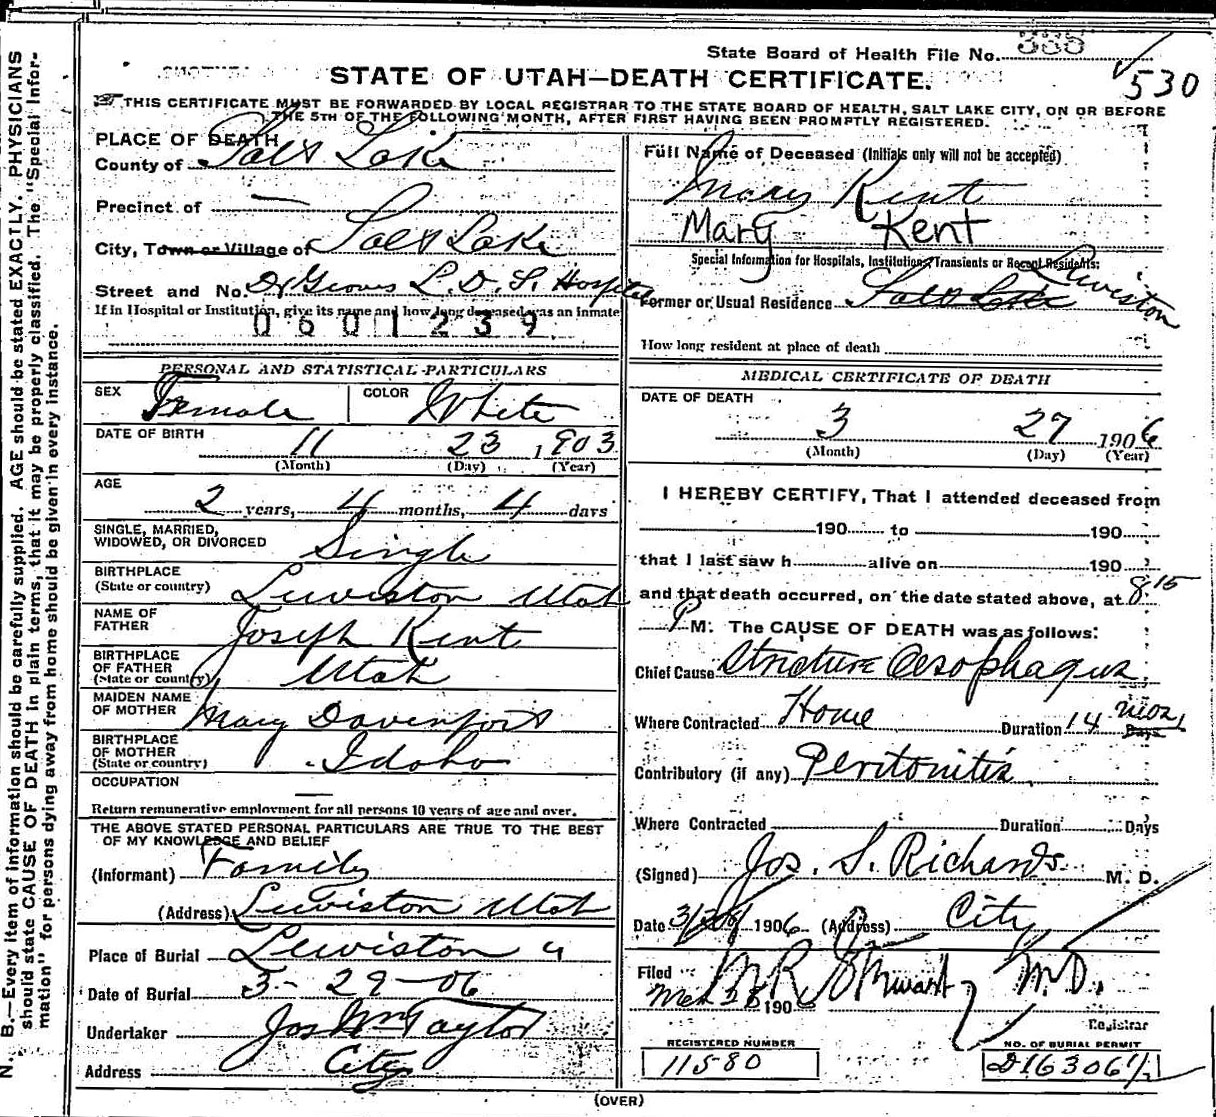 State Board of Health File No. 335
530
STATE OF UTAH—DEATH CERTIFICATE.
THIS CERTIFICATE MUST BE FORWARDED BY LOCAL REGISTRAR TO THE STATE BOARD OF HEALTH, SALT LAKE CITY, ON OR BEFORE
THE 5TH OF THE FOLLOWING MONTH, AFTER FIRST HAVING BEEN PROMPTLY REGISTERED.
N. B.—Every item of information should be carefully supplied. AGE should be stated EXACTLY. PHYSICIANS
should state CAUSE OF DEATH in plain terms, that it may be properly classified. The "Special Infor-
mation" for persons dying away from home should be given in every instance.
PLACE OF DEATH
County of Salt Lake
Precinct of —
City, Town or Village of Salt Lake
Street and No. Dr Groves L. D. S. Hospital
If in Hospital or Institution, give its name and how long deceased was an inmate
0601239
PERSONAL AND STATISTICAL PARTICULARS
SEX Female COLOR White
DATE OF BIRTH 11 23 1903
(Month) (Day) (Year)
AGE
2 years, 4 months, 4 days
SINGLE, MARRIED,
WIDOWED, OR DIVORCED Single
BIRTHPLACE
(State or country) Lewiston Utah
NAME OF
FATHER Joseph Kent
BIRTHPLACE
OF FATHER
(State or country) Utah
MAIDEN NAME
OF MOTHER Mary Davenport
BIRTHPLACE
OF MOTHER
(State or country) Idaho
OCCUPATION —
Return remunerative employment for all persons 10 years of age and over.
THE ABOVE STATED PERSONAL PARTICULARS ARE TRUE TO THE BEST
OF MY KNOWLEDGE AND BELIEF
(Informant) Family
(Address) Lewiston Utah
Place of Burial Lewiston "
Date of Burial 3-29-06
Undertaker Jos Wm Taylor
Address City
Full Name of Deceased (Initials only will not be accepted)
Mary Kent
Mary Kent
Special Information for Hospitals, Institutions, Transients or Recent Residents:
Former or Usual Residence Salt Lake Lewiston
How long resident at place of death
MEDICAL CERTIFICATE OF DEATH
DATE OF DEATH
3 27 1906
(Month) (Day) (Year)
I HEREBY CERTIFY, That I attended deceased from
190 to 190
that I last saw h alive on 190
and that death occurred, on the date stated above, at 8.15
P M. The CAUSE OF DEATH was as follows:
Chief Cause Stricture Oesophagus
Where Contracted Home Duration 14 mos Days
Contributory (if any) Peritonitis
Where Contracted Duration Days
(Signed) Jos. S. Richards M. D.
Date 3/28/1906 (Address) City
Filed
Mch 28 190 M R Stewart M.D.
Registrar
REGISTERED NUMBER
11580
NO. OF BURIAL PERMIT
D16306½
(OVER)